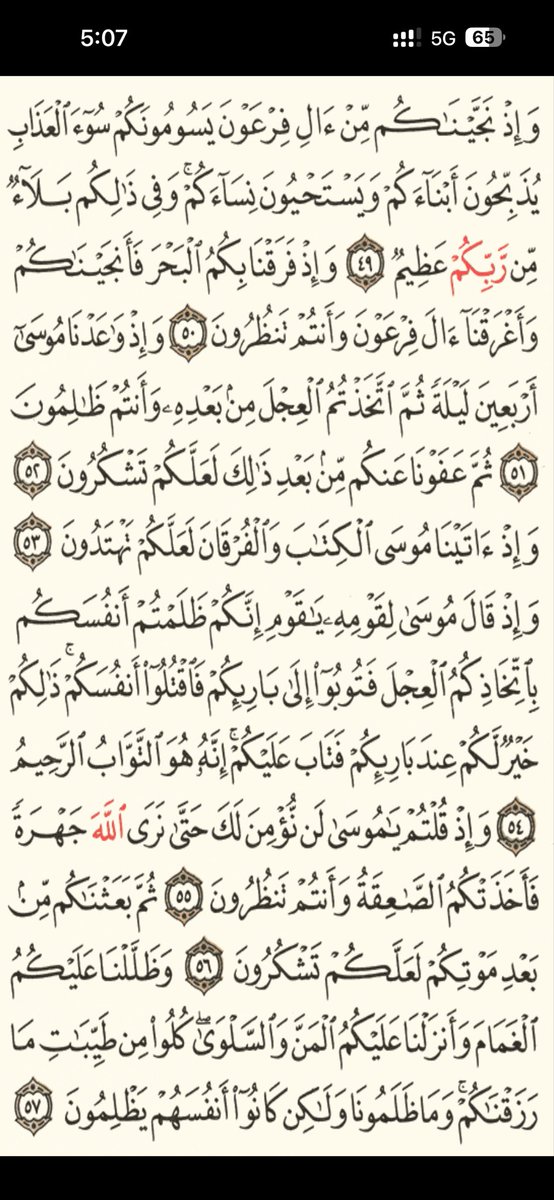 5:07 5G 65
وَإِذْ نَجَّيْنَٰكُم مِّنْ ءَالِ فِرْعَوْنَ يَسُومُونَكُمْ سُوٓءَ ٱلْعَذَابِ
يُذَبِّحُونَ أَبْنَآءَكُمْ وَيَسْتَحْيُونَ نِسَآءَكُمْ ۚ وَفِى ذَٰلِكُم بَلَآءٌ
مِّن رَّبِّكُمْ عَظِيمٌ ٤٩ وَإِذْ فَرَقْنَا بِكُمُ ٱلْبَحْرَ فَأَنجَيْنَٰكُمْ
وَأَغْرَقْنَآ ءَالَ فِرْعَوْنَ وَأَنتُمْ تَنظُرُونَ ٥٠ وَإِذْ وَٰعَدْنَا مُوسَىٰٓ
أَرْبَعِينَ لَيْلَةً ثُمَّ ٱتَّخَذْتُمُ ٱلْعِجْلَ مِنۢ بَعْدِهِۦ وَأَنتُمْ ظَٰلِمُونَ
٥١ ثُمَّ عَفَوْنَا عَنكُم مِّنۢ بَعْدِ ذَٰلِكَ لَعَلَّكُمْ تَشْكُرُونَ ٥٢
وَإِذْ ءَاتَيْنَا مُوسَى ٱلْكِتَٰبَ وَٱلْفُرْقَانَ لَعَلَّكُمْ تَهْتَدُونَ ٥٣
وَإِذْ قَالَ مُوسَىٰ لِقَوْمِهِۦ يَٰقَوْمِ إِنَّكُمْ ظَلَمْتُمْ أَنفُسَكُم
بِٱتِّخَاذِكُمُ ٱلْعِجْلَ فَتُوبُوٓا۟ إِلَىٰ بَارِئِكُمْ فَٱقْتُلُوٓا۟ أَنفُسَكُمْ ۚ ذَٰلِكُمْ
خَيْرٌ لَّكُمْ عِندَ بَارِئِكُمْ فَتَابَ عَلَيْكُمْ ۚ إِنَّهُۥ هُوَ ٱلتَّوَّابُ ٱلرَّحِيمُ
٥٤ وَإِذْ قُلْتُمْ يَٰمُوسَىٰ لَن نُّؤْمِنَ لَكَ حَتَّىٰ نَرَى ٱللَّهَ جَهْرَةً
فَأَخَذَتْكُمُ ٱلصَّٰعِقَةُ وَأَنتُمْ تَنظُرُونَ ٥٥ ثُمَّ بَعَثْنَٰكُم مِّنۢ
بَعْدِ مَوْتِكُمْ لَعَلَّكُمْ تَشْكُرُونَ ٥٦ وَظَلَّلْنَا عَلَيْكُمُ
ٱلْغَمَامَ وَأَنزَلْنَا عَلَيْكُمُ ٱلْمَنَّ وَٱلسَّلْوَىٰ ۖ كُلُوا۟ مِن طَيِّبَٰتِ مَا
رَزَقْنَٰكُمْ ۖ وَمَا ظَلَمُونَا وَلَٰكِن كَانُوٓا۟ أَنفُسَهُمْ يَظْلِمُونَ ٥٧